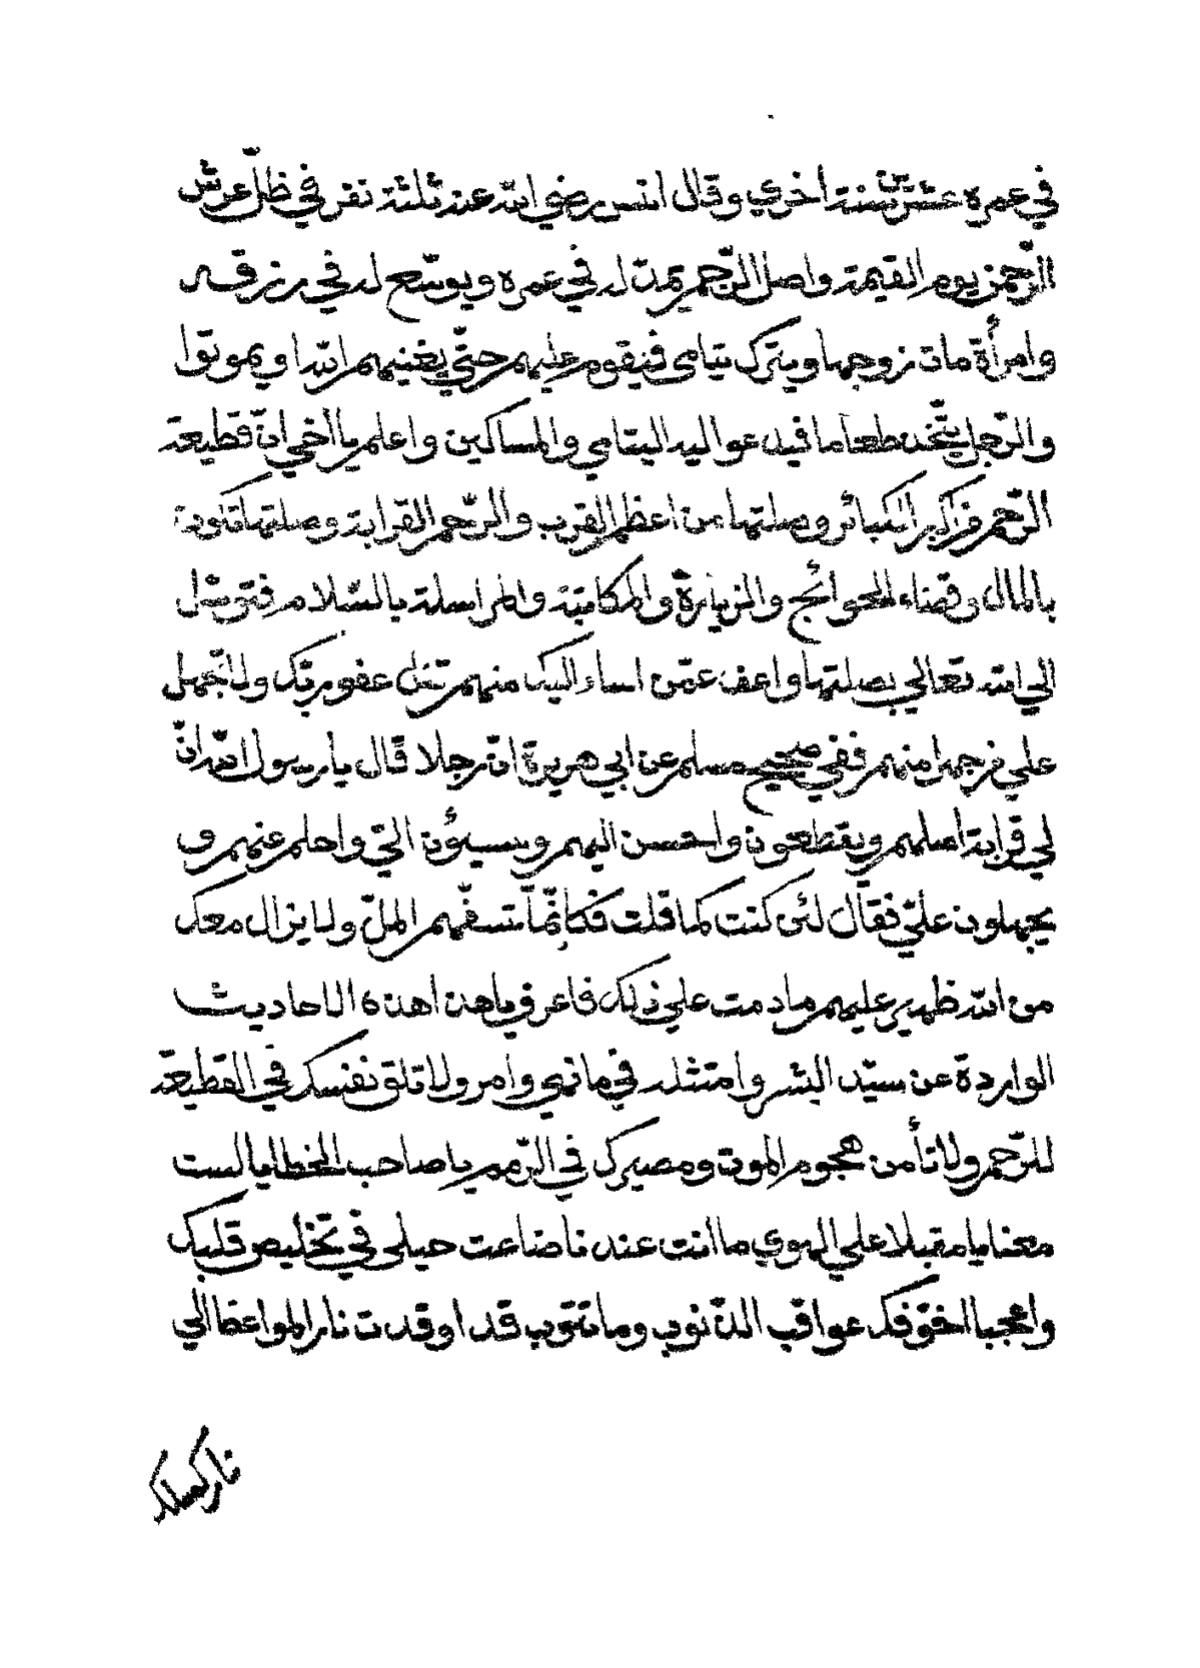 في عمره عشرين سنة اخري وقال انس رضي الله عنه ثلثة نفر في ظلّ عرش
الرّحمن يوم القيمة واصل الرّحم يمدّ له في عمره ويوسّع له في رزقه
وامرأة مات زوجها ويترك يتامى فيقوم عليهم حتّي يغنيهم الله او يموتوا
والرّجل يتّخذ طعاما فيدعو اليه اليتامي والمساكين واعلم يا اخي انّ قطيعة
الرّحم من اكبر الكبائر وصلتها من اعظم القرب والرّحم القرابة وصلتها تكون
بالمال وقضاء الحوائج والزيارة والمكاتبة والمراسلة بالسّلام فتوسّل
الي الله تعالي بصلتها واعف عمّن اساء اليك منهم تنل عفو ربّك ولا تجهل
علي من جهل منهم ففي صحيح مسلم عن ابي هريرة انّ رجلا قال يا رسول الله انّ
لي قرابة اصلهم ويقطعون واحسن اليهم ويسيؤن اليّ واحلم عنهم و
يجهلون عليّ فقال لئن كنت كما قلت فكانّما تسفّهم الملّ ولا يزال معك
من الله ظهير عليهم ما دمت علي ذلك فاعرف يا هذا هذه الاحاديث
الواردة عن سيّد البشر وامتثله في ما نهي وامر ولا تلق نفسك في القطيعة
للرّحم ولا تأمن هجوم الموت ومصيرك في الرّمم يا صاحب الخطايا لست
معنا يا مقبلا علي الهوي ما انت عندنا ضاعت حيلى في تخليص قلبك
واعجبا اخوّفك عواقب الذّنوب وما تتوب قد اوقدت نار المواعظ الي